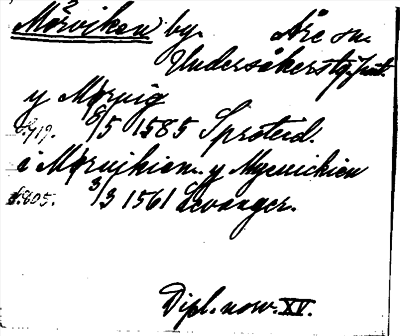 Mörviken by. Åre sn.
Undersåkers tg. Jämt.
y Mørvig
S. 719. 8/5 1585 Sproterd.
i Mørvikien y Myenickien
S. 805. 3/3 1561 Levanger.
Dipl. norv. XV.